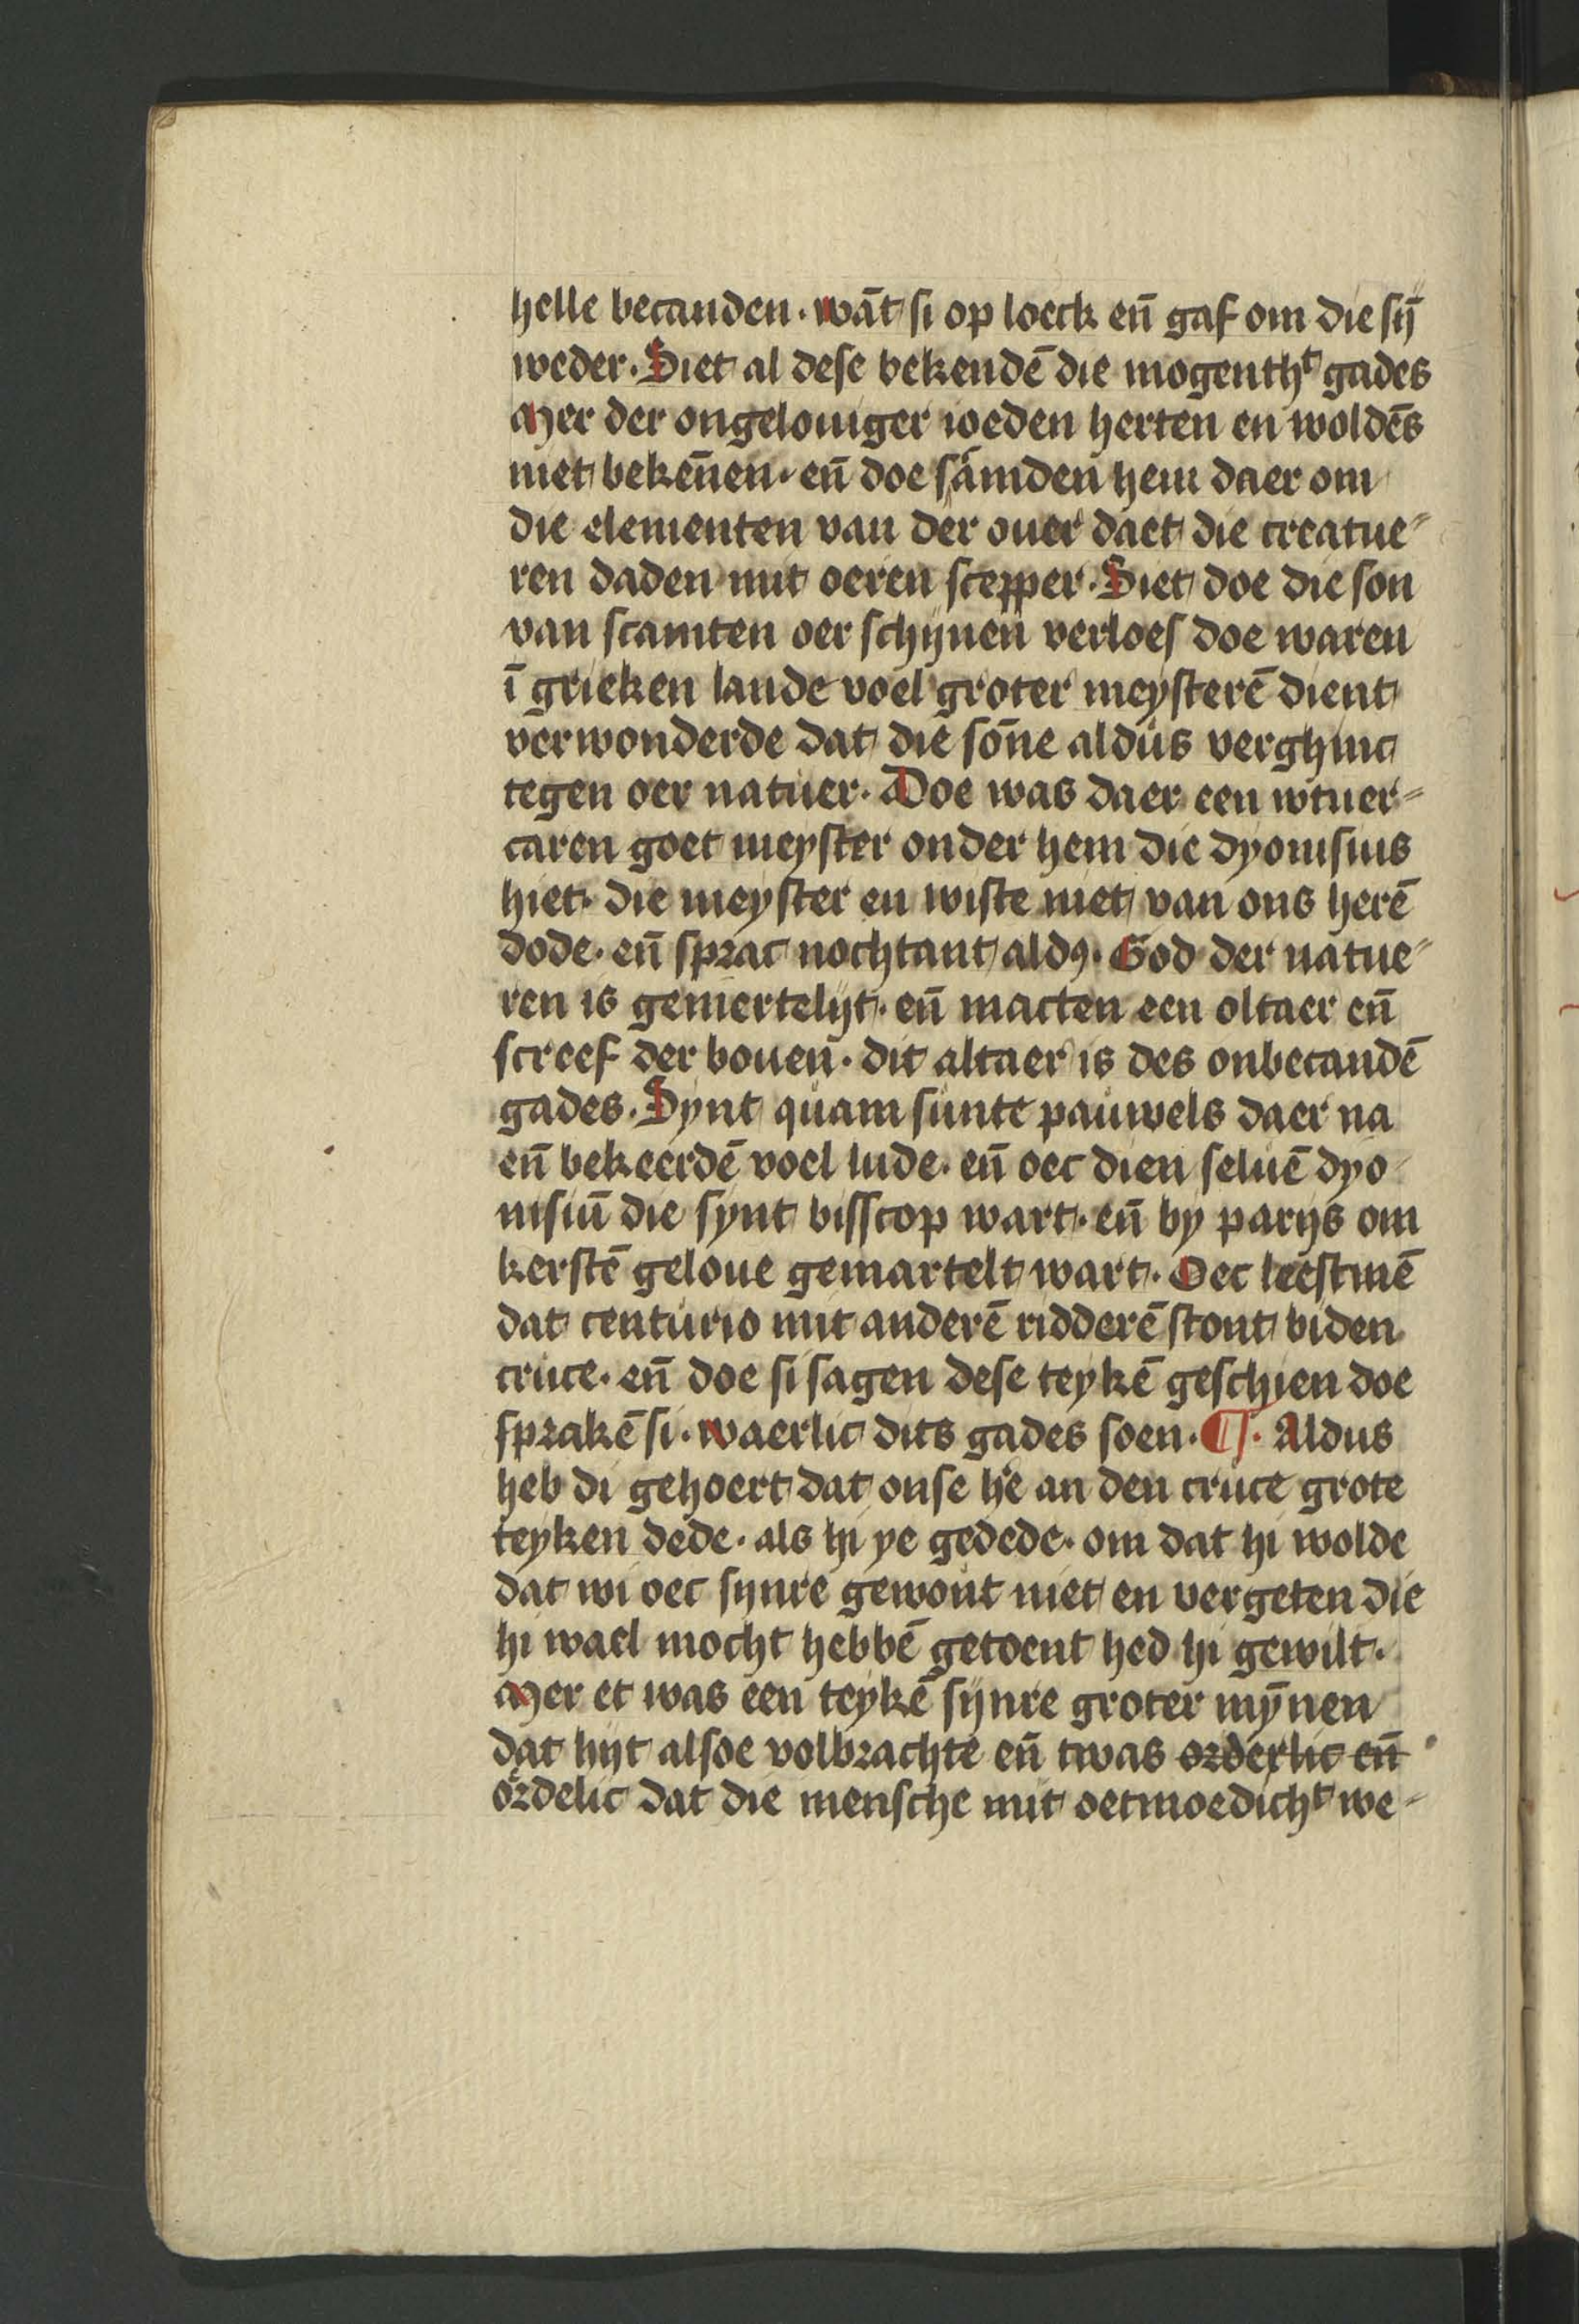 helle becanden. wāt si op loeck en̄ gaf om die sij̄
weder. Siet al dese bekendē die mogentht gades
Mer der ongelouiger ioeden herten en woldēs
niet beken̄en. en̄ doe sāmden hem daer om
die elementen van der ouer daet die creatue⸗
ren daden mit oeren scepper. Siet doe die son
van scamten oer schijnen verloes doe waren
ī grieken lande voel groter meysterē dient
verwonderde dat die son̄e aldus verghinc
tegen oer natuer. Doe was daer een wtuer⸗
caren goet meyster onder hem die dyonisius
hiet. die meyster en wiste niet van ons herē
dode. en̄ sprac nochtant aldꝰ. God der natue⸗
ren is gemertelijt. en̄ macten een oltaer en̄
screef der bouen. dit altaer is des onbecandē
gades. Synt quam sunte pauwels daer na
en̄ bekeerdē voel lude. en̄ oec dien seluē dyo⸗
nisiū die synt bisscop wart. en̄ by parijs om
kerstē geloue gemartelt wart. Oec leestmē
dat centurio mit anderē ridderē stont biden
cruce. en̄ doe si sagen dese teykē geschien doe
sprakē si. waerlic dits gades soen. ¶. Aldus
heb di gehoert dat onse h̄e an den cruce grote
teyken dede. als hi ye gedede. om dat hi wolde
dat wi oec synre gewout niet en vergeten die
hi wael mocht hebbē getoent hed hi gewilt.
Mer et was een teykē sijnre groter myn̄en
dat hijt alsoe volbrachte en̄ twas orderlic en̄
ordelic dat die mensche mit oetmoedicht we⸗